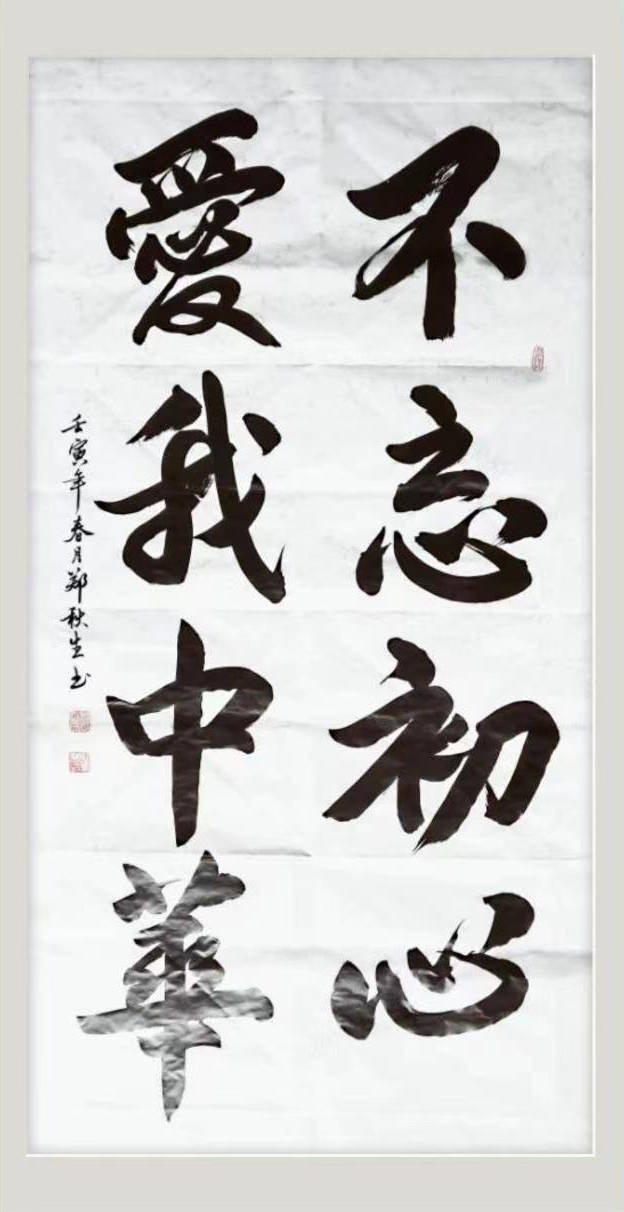 不忘初心
愛我中華
壬寅年春月鄭秋生书